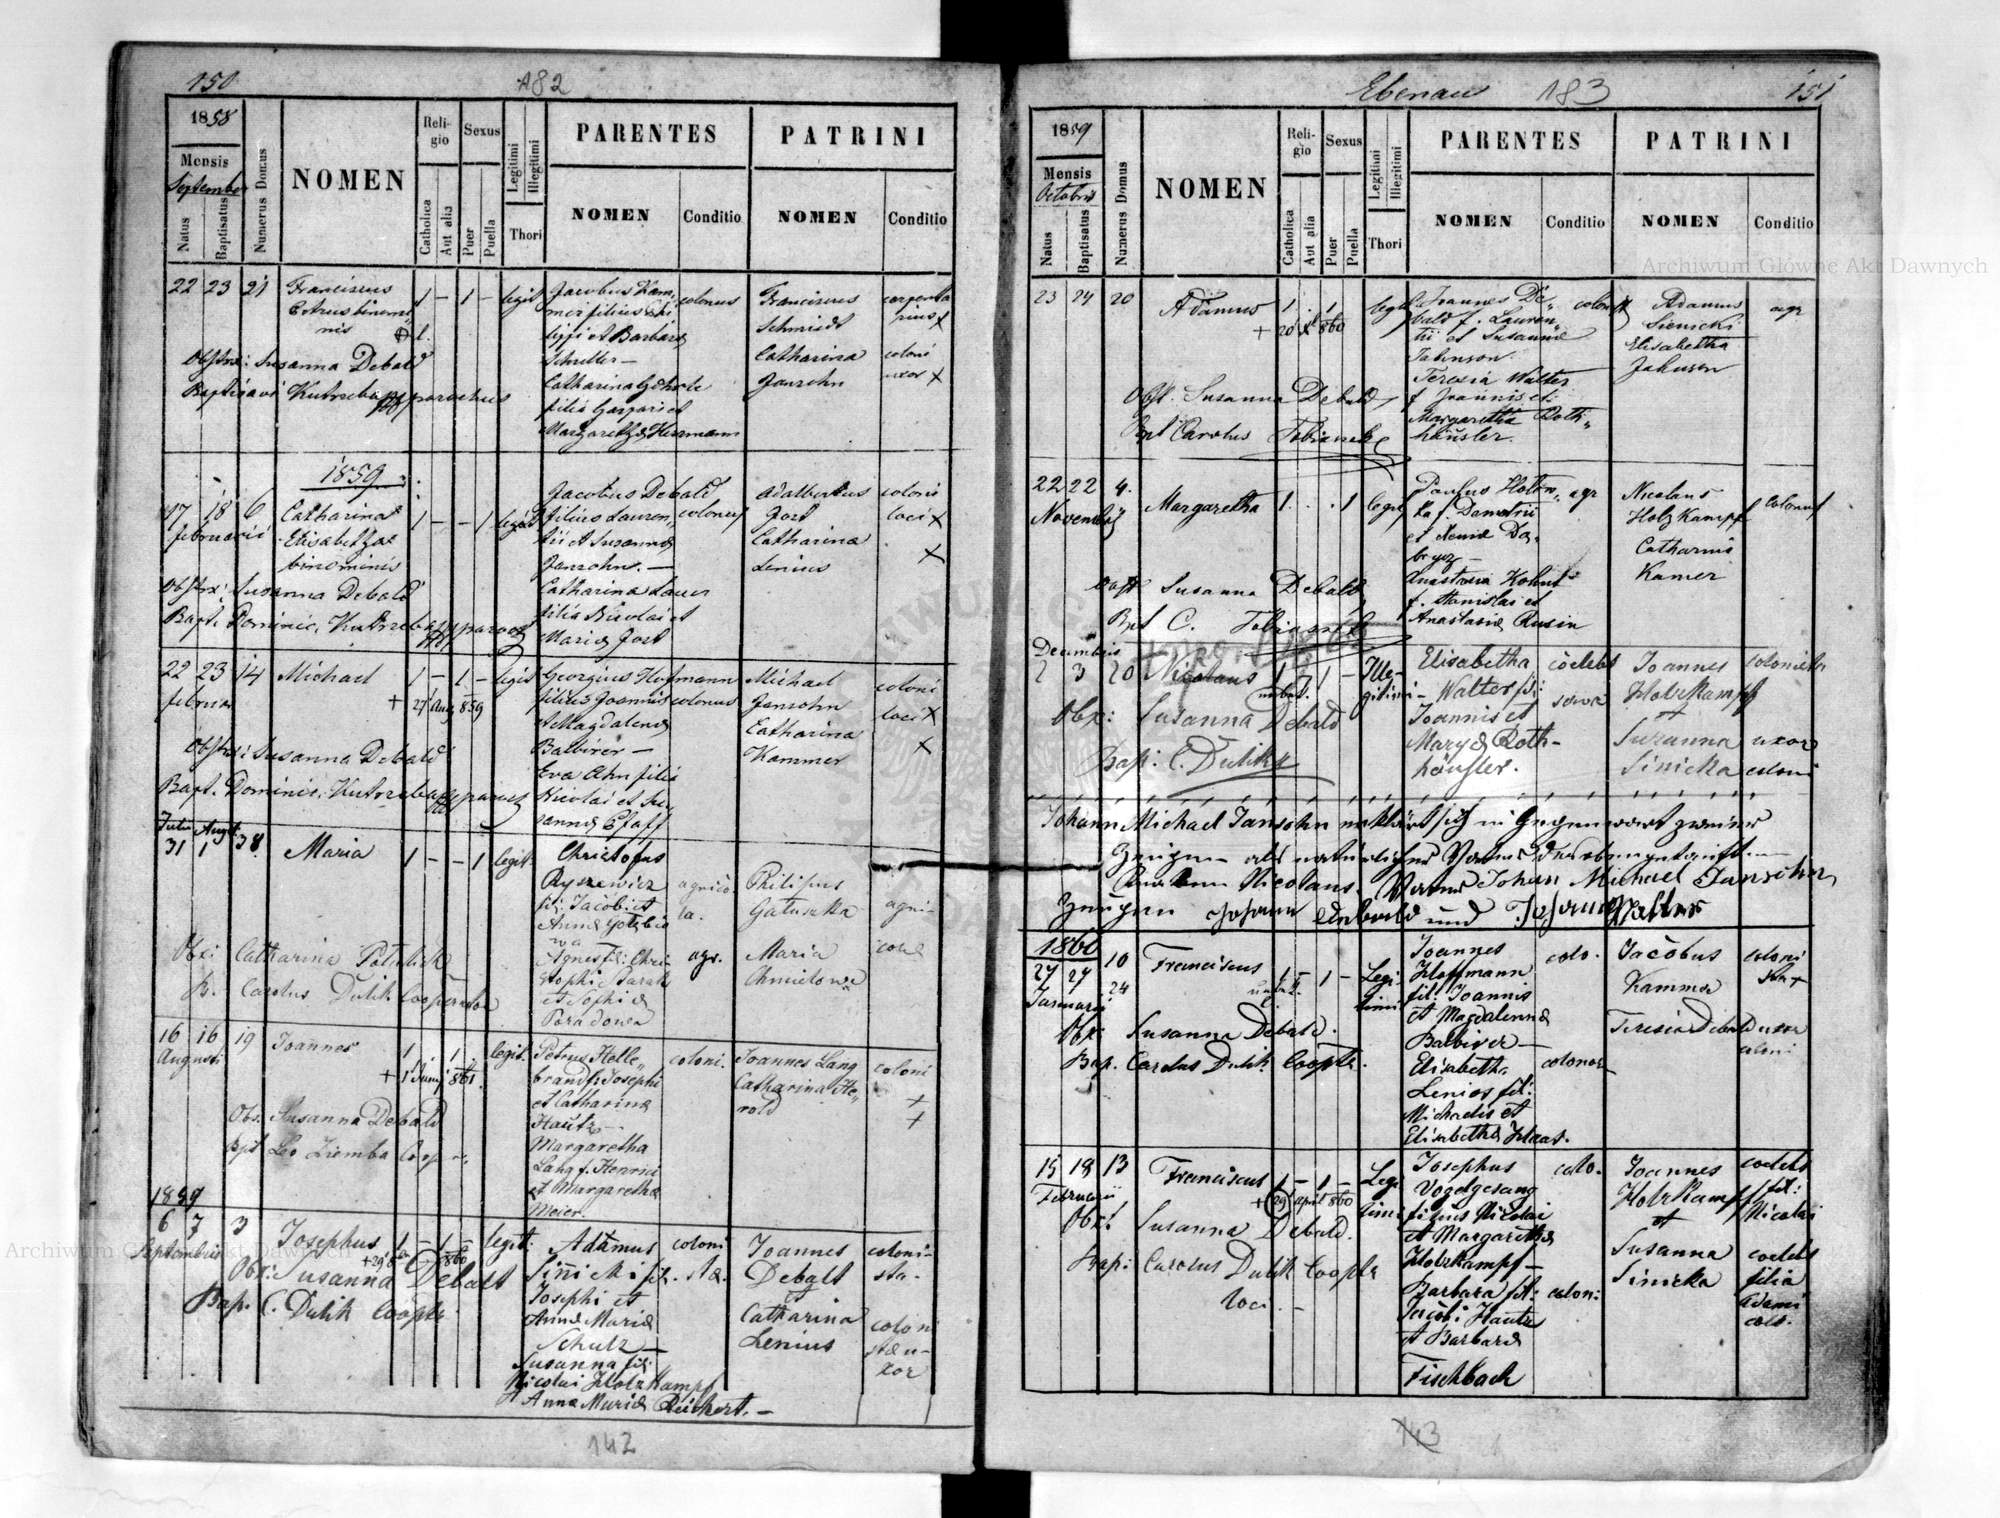 150
182
1858
Mensis
September
Natus
Baptisatus
Numerus Domus
NOMEN
Religio
Catholica
Aut alia
Sexus
Puer
Puella
Legitimi
Illegitimi
Thori
PARENTES
NOMEN
Conditio
PATRINI
NOMEN
Conditio
22 23 21 Franciscus
binomi
nis
1 - 1 - legit
Jacobus Kam
mer filius
et Barbara
Catharina
filia Gaspari et
Margaretha Hermann
colonus
Franciscus
Schmiedt
Catharina
Jansohn
coloni
uxor x
Obstrix: Susanna Debald
Baptisavi Kutrzeba parochus
1859
17 18 6
februarii
Catharina
Elisabetha
binominis
1 - - 1 legit
Jacobus Debald
filius Lauren
tii et Susanna
Jansohn. —
Catharina Lauer
filia Nicolai et
Maria Jost
colonus
Adalbertus
Jost
Catharina
Lenius
coloni
loci x
x
Obstrix: Susanna Debald
Bapt. Dominic. Kutrzeba paroch
22 23 14 Michael
februar
1 - 1 - legit
+ 27 Aug 859
Georgius Hofmann
filius Joannis
et Magdalena
Barbirer —
Eva Ahn filia
Nicolai et Su
sanna Pfaff
colonus
Michael
Jansohn
Catharina
Kammer
coloni
loci x
x
Obstrix: Susanna Debald
Bapt. Dominic. Kutrzeba paroch
Julii August
31 1 38. Maria
1 - - 1 legit.
Christofus
Ryszewicz
fil: Jacobi et
Anna
Agnes fil: Chri
stophi Barak
et Sophia
Poradowa
agrico
la.
agr.
Philipus
Gatuszka
Maria
Chmielowa
agri-
cola
Obx: Catharina
B. Carolus Dulik Cooperator
16 16 19 Joannes
Augusti
1 . 1 . legit.
+ 1 Junij 861.
Petrus Helle
brand f: Josephi
et Catharina
Hautz —
Margaretha
Lang f. Henrici
et Margaretha
Meier.
coloni.
Joannes Lang
Catharina He
rold
coloni
+
+
Obs. Susanna Debald
Bpt Leo Ziemba Coop
1859
6 7 3 Josephus
Septembris
1 - 1 - legit:
860
Adamus
Sinicki fil.
Josephi et
Anna Maria
Schulz —
Susanna fil:
Nicolai Holzkampf
et Anna Maria Reichert. —
coloni
sta.
Joannes
Debalt
et
Catharina
Lenius
coloni-
sta-
coloni
sta u-
xor
Obx: Susanna Debalt
Bap. C. Dulik Cooptr
142
Ebenau
183
151
1859
Mensis
Octobris
Natus
Baptisatus
Numerus Domus
NOMEN
Religio
Catholica
Aut alia
Sexus
Puer
Puella
Legitimi
Illegitimi
Thori
PARENTES
NOMEN
Conditio
PATRINI
NOMEN
Conditio
23 24 20 Adamus
1 . 1 . legit
+ 20 860
Joannes De
bald f. Lauren
tii et Susanna
Jahnson
Teresia Walter
f Joannis et
Margaretha Roth
häusler.
colonist
Adamus
Sienicki
Elisabetha
Jahnson
agr
Obst. Susanna Debald
Bpt Carolus Tobiaszek
22 22 4.
Novembris
Margaretha
1 . . 1 legit
Paulus
f Demetrii
et
Anastasia
f. Stanislai et
Anastasia Rusin
agr
Nicolaus
Holzkampf
Catharina
Kamer
colonus
Obst Susanna Debald
Bpt C. Tobiaszek
Decembris
2 3 20 Nicolaus
1 - 1 - Ille-
gitimi
Elisabetha
Walter fil:
Joannis et
Marya Roth-
häusler.
coelebs
Joannes
Holzkampf
et
Suzanna
Sinicka
uxor
coloni
Obx: Susanna Debald
Bap: C. Dulik
Johann Michael Jansohn erklärt sich in Gegenwart zweier
Zeugen als natürlicher Vater des oben getauften
Knaben Nicolaus. Vater Johan Michael Jansohn
Zeugen Johann Debald und Johann Walter
1860
27 27 10
24
Januarii
Franciscus
1 - 1 - Legi-
timi
Joannes
Hoffmann
fil: Joannis
et Magdalenna
Balbirer —
Elisabetha
Lenios fil:
Michaelis et
Elisabetha Haas.
colo.
colonor
Jacobus
Kammer
Teresia Debald
coloni
sta +
uxor
coloni
Obx Susanna Debald.
Bap. Carolus Dulik Cooptr.
15 18 13
Februarii
Franciscus
1 - 1 - Legi
timi
+ 29 april 860
Josephus
Vogelgesang
filius Nicolai
et Margaretha
Holzkampf —
Barbara fil:
Jacobi Hautz
et Barbara
Fischbach
colo.
colon:
Joannes
Holzkampf
et
Susanna
Sinicka
coelebs
fil:
Nicolai
coelebs
filia
Adami
colo.
Obx: Susanna Debald.
Bap: Carolus Dulik Cooptr
loci —
143
Archiwum Główne Akt Dawnych
Archiwum Główne Akt Dawnych